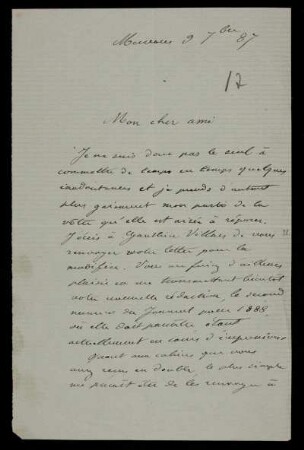 9 7bre 87
17
Mon cher ami
Je ne suis donc pas le seul à
commettre de temps en temps quelques
inadvertances et je prends d'autant
plus gaiement mon parti de la
vôtre qu'elle est aisée à réparer.
J'écris à Gauthier Villars de vous
renvoyer votre lettre pour la
modifier. Vous me ferez d'ailleurs
plaisir en me transmettant bientôt
votre nouvelle rédaction, le second
numéro du Journal pour 1888
où elle doit paraître étant
actuellement en cours d'impression.
Quant aux cahiers que vous
avez reçus en double, le plus simple
me paraît être de les renvoyer à